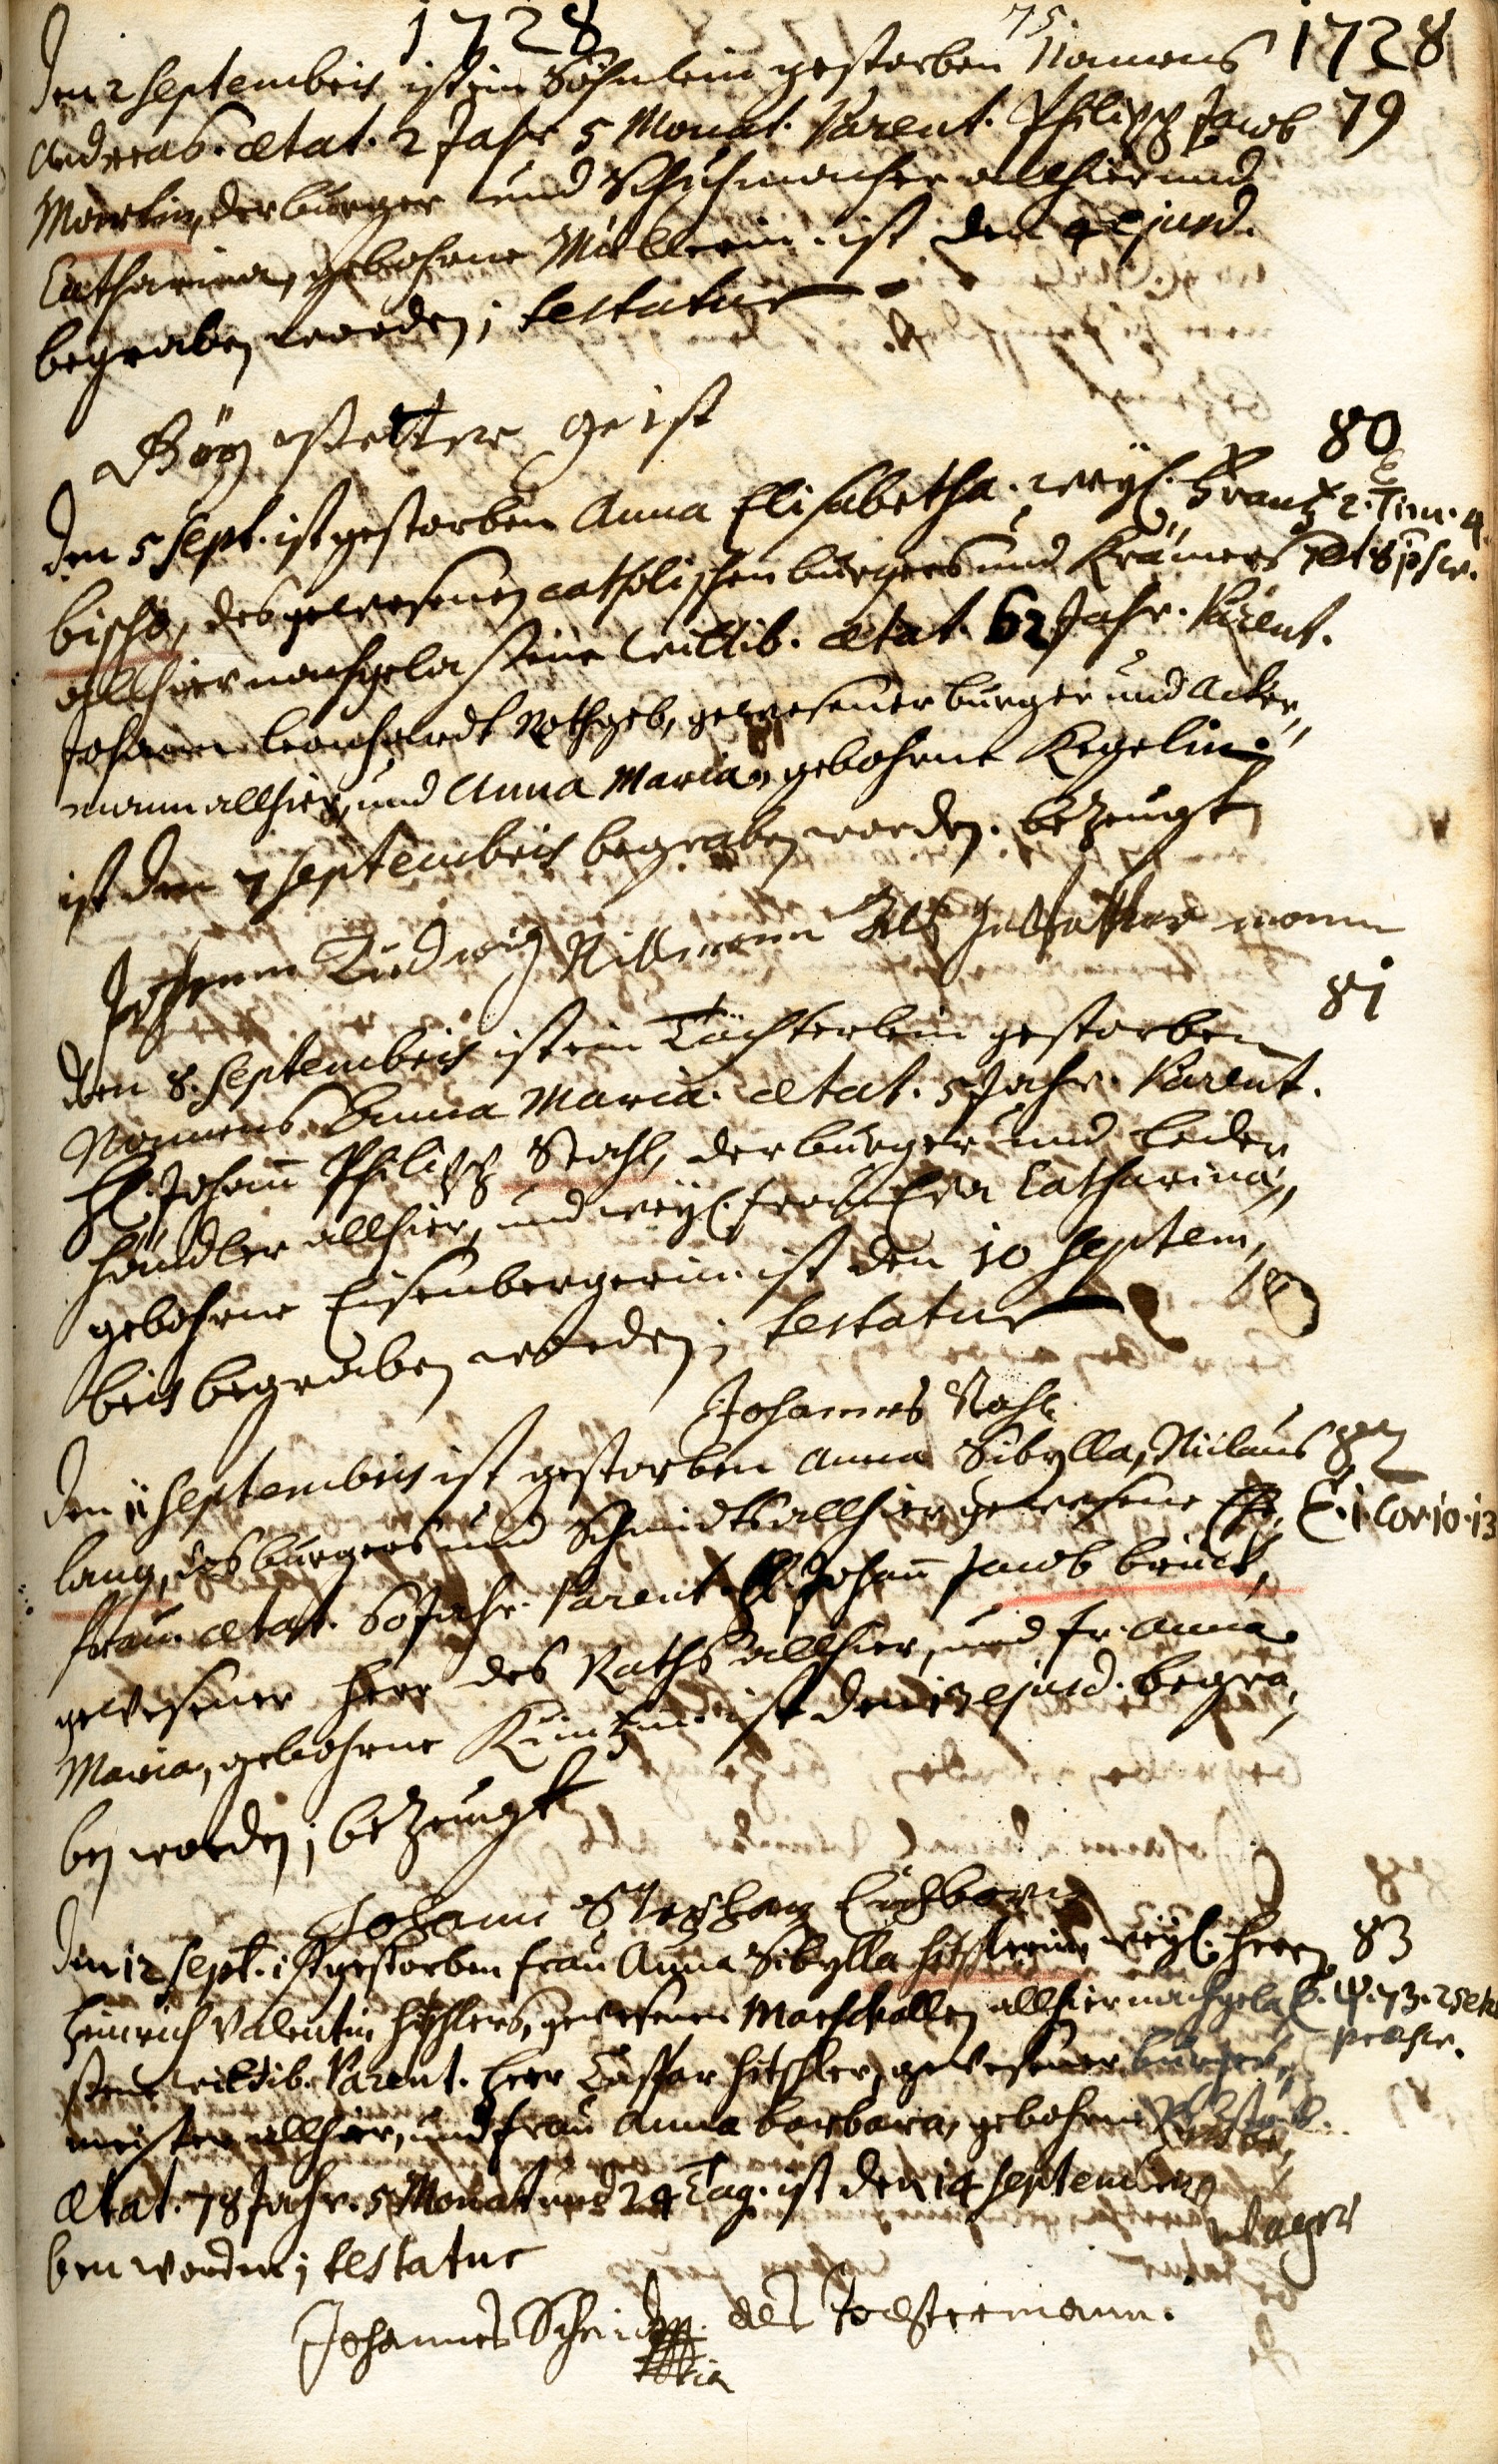 1728 75. 1728
Den 2 Septembris ist ein Söhnlein gestorben Namens
Andreas. ætat. 2 Jahr 5 Monat. Parent. Philipp Jacob 79
Moerlin, der burger und Schuhmacher allhier und
Catharina, gebohrne Müllerin. ist den 4 ejusd.
begraben worden; testatur
geist
80
Den 5 Sept. ist gestorben Anna Elisabetha. weyl. Frantz 2. Tim. 4
bischo, des gewesenen catholischen burgers und Krämers
allhier nachgelaßene wittib. ætat. 62 Jahr. Parent.
Johann Leonhardt Rothgeb, gewesener burger und Acker,,
mann allhier, und Anna Maria, gebohrne Kegelin.
ist den 7 Septembris begraben worden. bezeugt
Johann Ludwig Rittmann Als gevatter mann
81
Den 8. Septembris ist ein Töchterlein gestorben
Namens Anna Maria. ætat. 5 Jahr. Parent.
H. Johann Philipp Stahl, der burger und leder
händler allhier, und weyl. frau Eva Catharina,,
gebohrne Eisenbergerin. ist den 10 Septem,,
bris begraben worden; testatur
Johannes Nahl
Den 11 Septembris ist gestorben Anna Sibylla, Niclaus 82
lang, des burgers und Schmidts allhier gewesene Ehe, E. 1. Cor. 10. 13
frau. ætat. 60 Jahr. Parent. H. Johann Jacob brück,
gewesener Herr des Raths allhier, und fr. Anna
Maria, gebohrne Kuntzin. ist den 13 ejusd. begra,,
ben worden; bezeugt
Johann Stephan
Den 12 Sept. ist gestorben frau Anna Sibylla Hitschlerin, weyl. Herrn 83
Heinrich Valentin Hitschlers, gewesenen Marschallen allhier nachgela E. Ψ. 73. 25
ßene wittib. Parent. Herr Caspar Hitschler, gewesener burger,,
meister allhier, und frau Anna barbara, gebohrne
ætat. 78 Jahr. 5 Monat und 24 Tag. ist den 14 Septembris
begra
ben worden; testatur
Johannes Schneider als